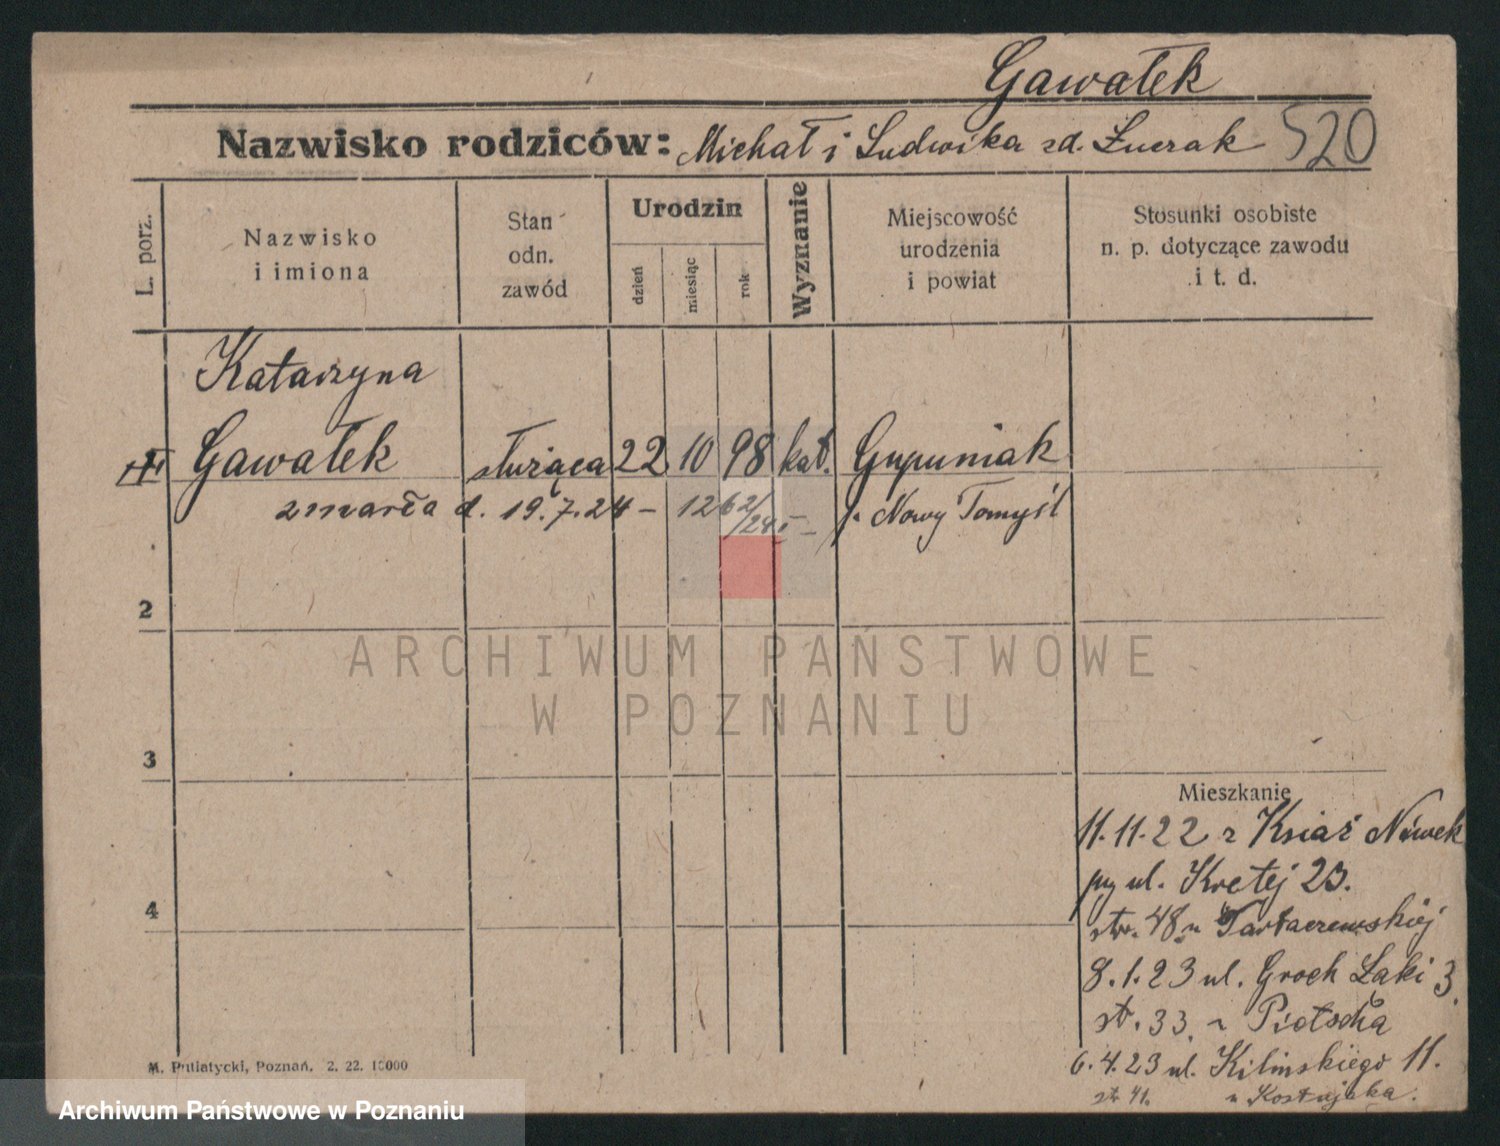 Gawałek
Nazwisko rodziców: Michał i Ludwika zd. Łuczak 520
L. porz.
Nazwisko
i imiona
Stan
odn.
zawód
Urodzin
dzień
miesiąc
rok
Wyznanie
Miejscowość
urodzenia
i powiat
Stosunki osobiste
n. p. dotyczące zawodu
i t. d.
Katarzyna
Gawałek służąca 22 10 98 kat.
zmarła d. 19.7.24 – 1262/24
p. Nowy Tomyśl
2
ARCHIWUM PAŃSTWOWE
W POZNANIU
3
Mieszkanie
11.11.22 z Książ
ul. Krętej 23.
str. 48 u
4
8.1.23 ul. Groch Łąki 3.
st. 33. u
6.4.23 ul. Kilińskiego 11.
st. 41. u
M. Putiatycki, Poznań. 2. 22. 10000
Archiwum Państwowe w Poznaniu